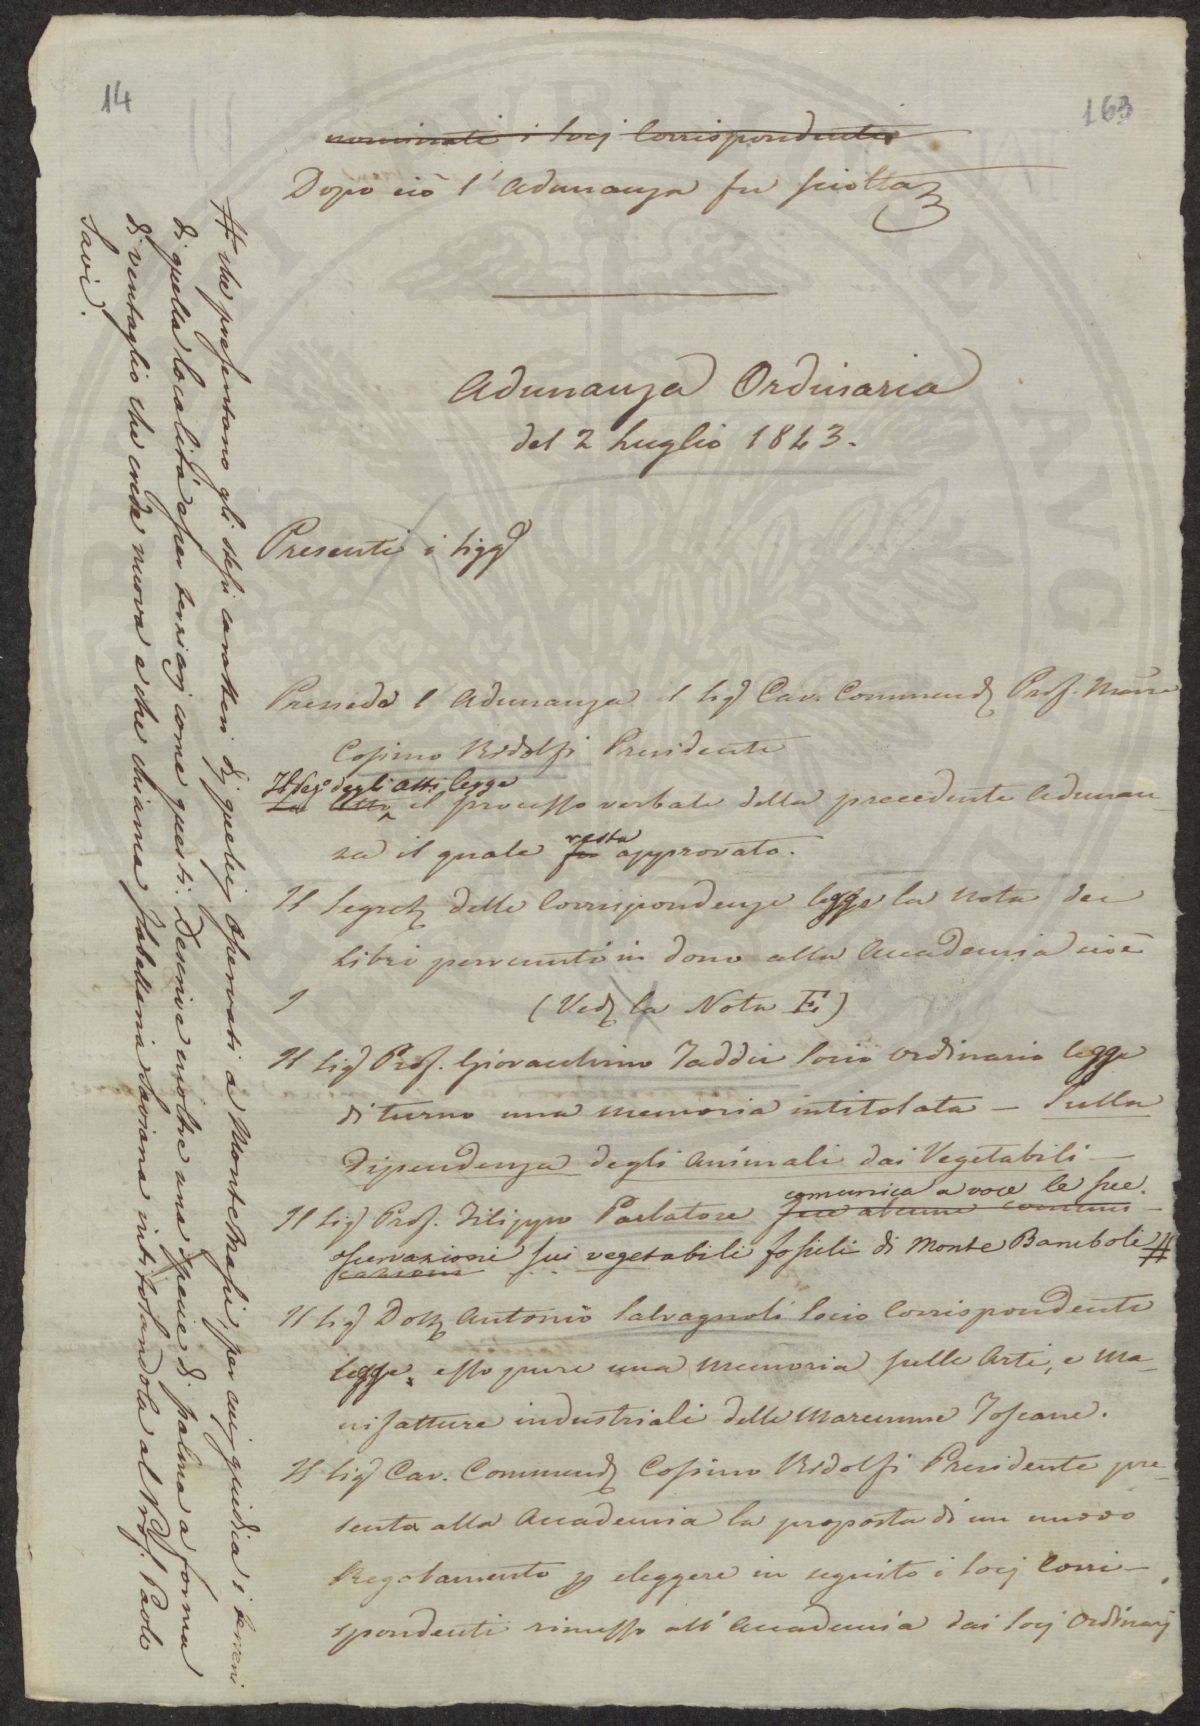 14
163
nominati i Socj Corrispondenti
Dopo ciò l'Adunanza fu sciolta
Adunanza Ordinaria
del 2 Luglio 1843.
Presenti i Sigg.
Presiede l'Adunanza il Sig. Cav. Commend. Prof. March.
Cosimo Ridolfi Presidente
Il Seg.o degli Atti legge
il processo verbale della precedente Adunan-
za il quale fu resta approvato.
Il Segret. delle Corrispondenze legge la nota dei
Libri pervenuti in dono alla Accademia cioè
1 (Ved. la Nota E)
Il Sig. Prof. Giovacchino Taddei Socio Ordinario legge
di turno una memoria intitolata — Sulla
Dipendenza degli Animali dai Vegetabili —
comunica a voce le sue
Il Sig. Prof. Filippo Parlatore fece alcune comuni-
osservazioni sui vegetabili fossili di Monte Bamboli #
cazioni
Il Sig. Dott. Antonio Salvagnoli Socio Corrispondente
legge esso pure una memoria sulle Arti, e Ma-
nifatture industriali delle Maremme Toscane.
Il Sig. Cav. Commend. Cosimo Ridolfi Presidente pre-
senta alla Accademia la proposta di un nuovo
Regolamento p. eleggere in seguito i Socj Corri-
spondenti rimesso all'Accademia dai Socj Ordinarj
# che presentano gli stessi caratteri di quelli osservati a Monte Massi, per cui giudica i terreni
di quella località esser terziarj come questi. Descrive inoltre una specie di palma a forma
di ventaglio che crede nuova e che chiama Sabellaria Saviana intitolandola al Prof. Paolo
Savi.